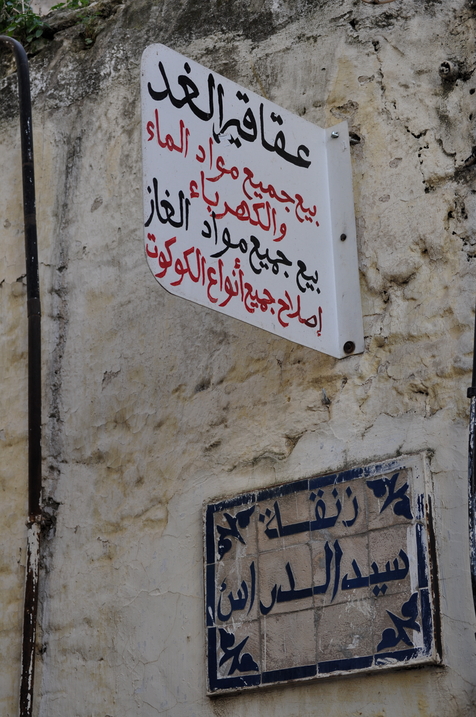 عقاقير الغد
بيع جميع مواد الماء
والكهرباء
بيع جميع مواد الغاز
إصلاح جميع أنواع الكوكوت
زنقة
سيد الدراس